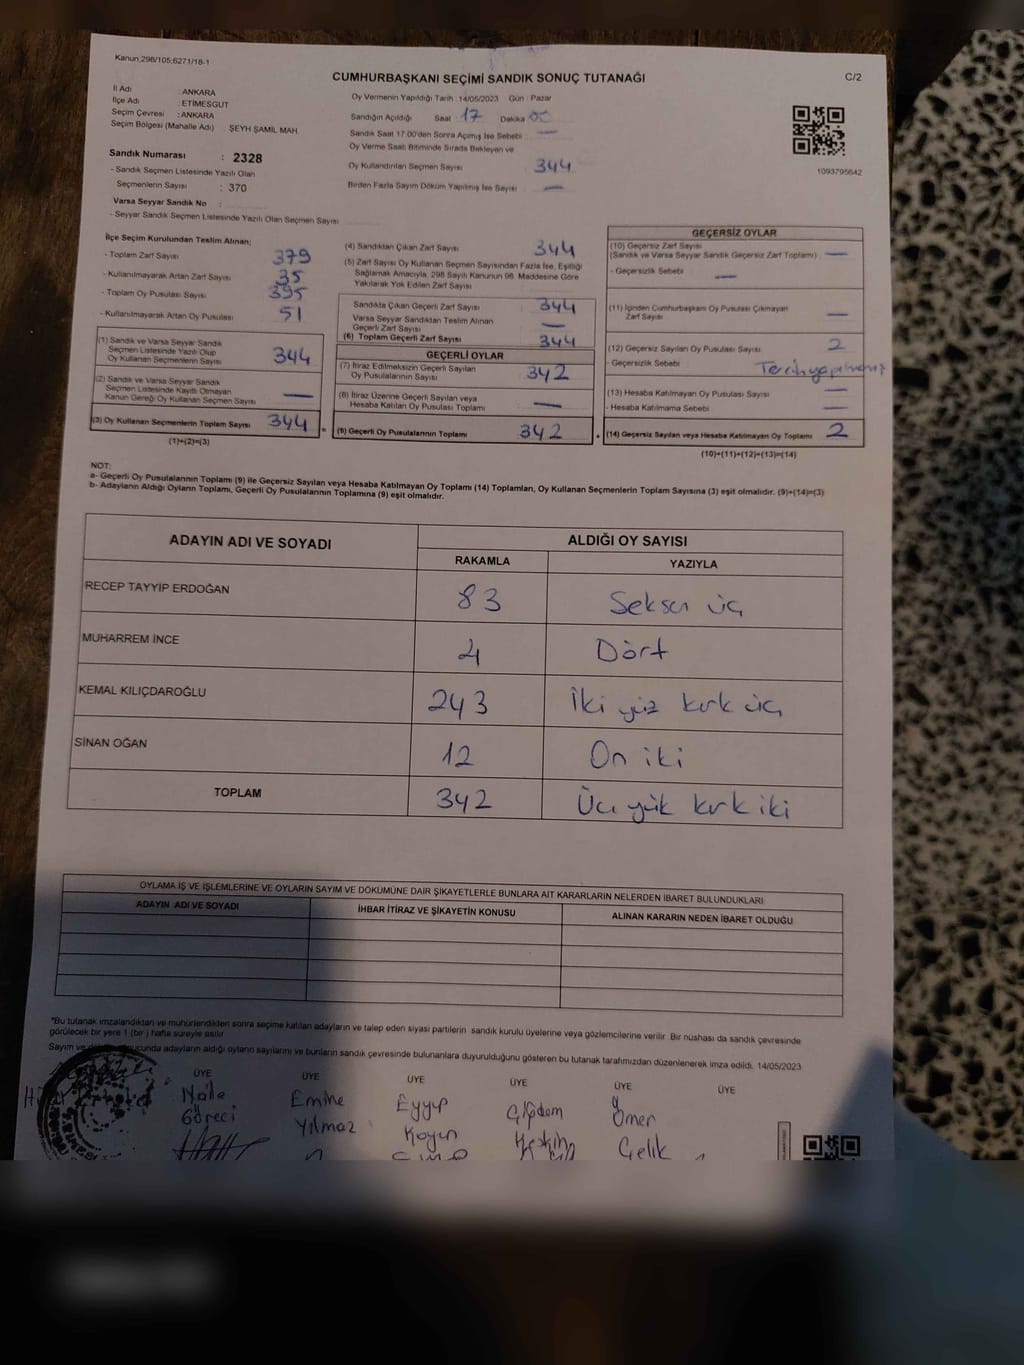 Kanun,298/105;6271/18-1
CUMHURBAŞKANI SEÇİMİ SANDIK SONUÇ TUTANAĞI
C/2
İl Adı : ANKARA
İlçe Adı : ETİMESGUT
Seçim Çevresi : ANKARA
Seçim Bölgesi (Mahalle Adı) ŞEYH ŞAMİL MAH
Sandık Numarası : 2328
- Sandık Seçmen Listesinde Yazılı Olan
Seçmenlerin Sayısı : 370
Varsa Seyyar Sandık No :
- Seyyar Sandık Seçmen Listesinde Yazılı Olan Seçmen Sayısı
Oy Vermenin Yapıldığı Tarih :14/05/2023 Gün : Pazar
Sandığın Açıldığı Saat 17 Dakika 00
Sandık Saat 17.00'den Sonra Açımış İse Sebebi : —
Oy Verme Saati Bitiminde Sırada Bekleyen ve
Oy Kullandırılan Seçmen Sayısı 344
Birden Fazla Sayım Döküm Yapılmış İse Sayısı : —
1093795642
İlçe Seçim Kurulundan Teslim Alınan;
- Toplam Zarf Sayısı 379
- Kullanılmayarak Artan Zarf Sayısı 35
- Toplam Oy Pusulası Sayısı 395
- Kullanılmayarak Artan Oy Pusulası 51
(1) Sandık ve Varsa Seyyar Sandık
Seçmen Listesinde Yazılı Olup
Oy Kullanan Seçmenlerin Sayısı 344
(2) Sandık ve Varsa Seyyar Sandık
Seçmen Listesinde Kayıtlı Olmayan
Kanun Gereği Oy Kullanan Seçmen Sayısı —
(3) Oy Kullanan Seçmenlerin Toplam Sayısı 344 =
(1)+(2)=(3)
(4) Sandıktan Çıkan Zarf Sayısı 344
(5) Zarf Sayısı Oy Kullanan Seçmen Sayısından Fazla İse, Eşitliği
Sağlamak Amacıyla, 298 Sayılı Kanunun 98. Maddesine Göre
Yakılarak Yok Edilen Zarf Sayısı
Sandıkta Çıkan Geçerli Zarf Sayısı 344
Varsa Seyyar Sandıktan Teslim Alınan
Geçerli Zarf Sayısı —
(6) Toplam Geçerli Zarf Sayısı 344
GEÇERLİ OYLAR
(7) İtiraz Edilmeksizin Geçerli Sayılan
Oy Pusulalarının Sayısı 342
(8) İtiraz Üzerine Geçerli Sayılan veya
Hesaba Katılan Oy Pusulası Toplamı —
(9) Geçerli Oy Pusulalarının Toplamı 342 +
GEÇERSİZ OYLAR
(10) Geçersiz Zarf Sayısı
(Sandık ve Varsa Seyyar Sandık Geçersiz Zarf Toplamı) —
- Geçersizlik Sebebi —
(11) İçinden Cumhurbaşkanı Oy Pusulası Çıkmayan
Zarf Sayısı —
(12) Geçersiz Sayılan Oy Pusulası Sayısı 2
- Geçersizlik Sebebi Tercih yapılmamış
(13) Hesaba Katılmayan Oy Pusulası Sayısı —
- Hesaba Katılmama Sebebi —
(14) Geçersiz Sayılan veya Hesaba Katılmayan Oy Toplamı 2
(10)+(11)+(12)+(13)=(14)
NOT:
a- Geçerli Oy Pusulalarının Toplamı (9) ile Geçersiz Sayılan veya Hesaba Katılmayan Oy Toplamı (14) Toplamları, Oy Kullanan Seçmenlerin Toplam Sayısına (3) eşit olmalıdır. (9)+(14)=(3)
b- Adayların Aldığı Oyların Toplamı, Geçerli Oy Pusulalarının Toplamına (9) eşit olmalıdır.
ADAYIN ADI VE SOYADI ALDIĞI OY SAYISI
RAKAMLA YAZIYLA
RECEP TAYYİP ERDOĞAN 83 Seksen üç
MUHARREM İNCE 4 Dört
KEMAL KILIÇDAROĞLU 243 İki yüz kırk üç
SİNAN OĞAN 12 On iki
TOPLAM 342 Üç yük kırk iki
OYLAMA İŞ VE İŞLEMLERİNE VE OYLARIN SAYIM VE DÖKÜMÜNE DAİR ŞİKAYETLERLE BUNLARA AİT KARARLARIN NELERDEN İBARET BULUNDUKLARI
ADAYIN ADI VE SOYADI İHBAR İTİRAZ VE ŞİKAYETİN KONUSU ALINAN KARARIN NEDEN İBARET OLDUĞU
*Bu tutanak imzalandıktan ve mühürlendikten sonra seçime katılan adayların ve talep eden siyasi partilerin sandık kurulu üyelerine veya gözlemcilerine verilir. Bir nüshası da sandık çevresinde
görülecek bir yere 1 (bir) hafta süreyle asılır
Sayım ve sonucunda adayların aldığı oyların sayılarını ve bunların sandık çevresinde bulunanlara duyurulduğunu gösteren bu tutanak tarafımızdan düzenlenerek imza edildi. 14/05/2023
ÜYE ÜYE ÜYE ÜYE ÜYE ÜYE
Naile Emine Eyyup Çiğdem Ömer
Göreci Yılmaz Koyun Keskin Çelik